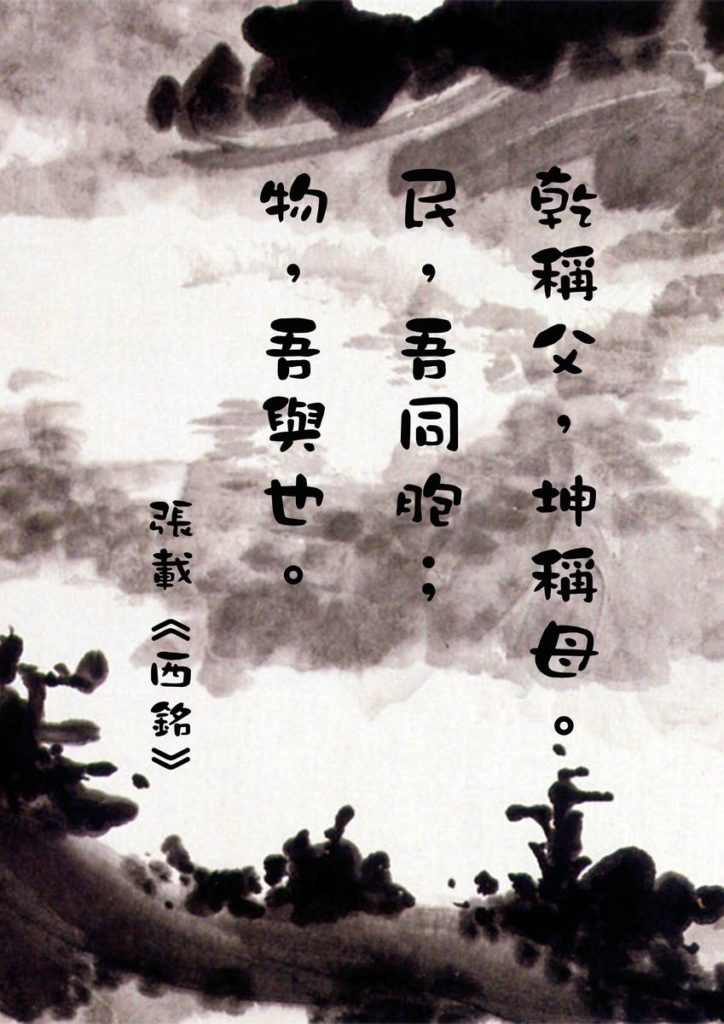 乾稱父，坤稱母。
民，吾同胞；
物，吾與也。
張載《西銘》